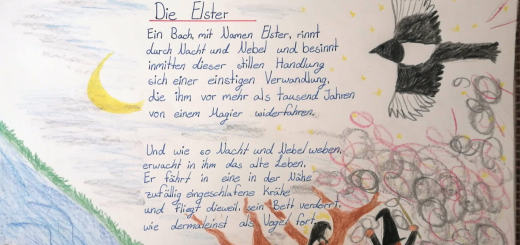 Die Elster
Ein Bach, mit Namen Elster, rinnt
durch Nacht und Nebel und besinnt
inmitten dieser stillen Handlung
sich einer einstigen Verwandlung,
die ihm vor mehr als tausend Jahren
von einem Magier widerfahren.
Und wie so Nacht und Nebel weben,
erwacht in ihm das alte Leben.
Er fährt in eine in der Nähe
zufällig eingeschlafene Krähe
und fliegt dieweil, sein Bett verdorrt,
wie dermaleinst als Vogel fort.